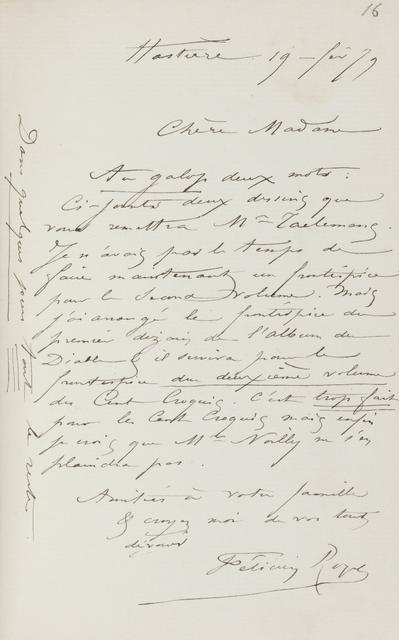 16
Hastière 19 - fév 79
Chère Madame
Au galop deux mots :
Ci-joints deux dessins que
vous remettra Mr Taelemans.
Je n'avais pas le temps de
faire maintenant un frontispice
pour le Second volume. Mais
j'ai arrangé le frontispice du
premier dizain de l'album du
Diable & il servira pour le
frontispice du deuxième volume
des Cent Croquis. C'est trop fait
pour les Cent Croquis mais enfin
je crois que Mr Noilly ne s'en
plaindra pas.
Amitiés à votre famille
& croyez moi de vos tout
dévoués
Félicien Rops
Dans quelques jours tout le reste.